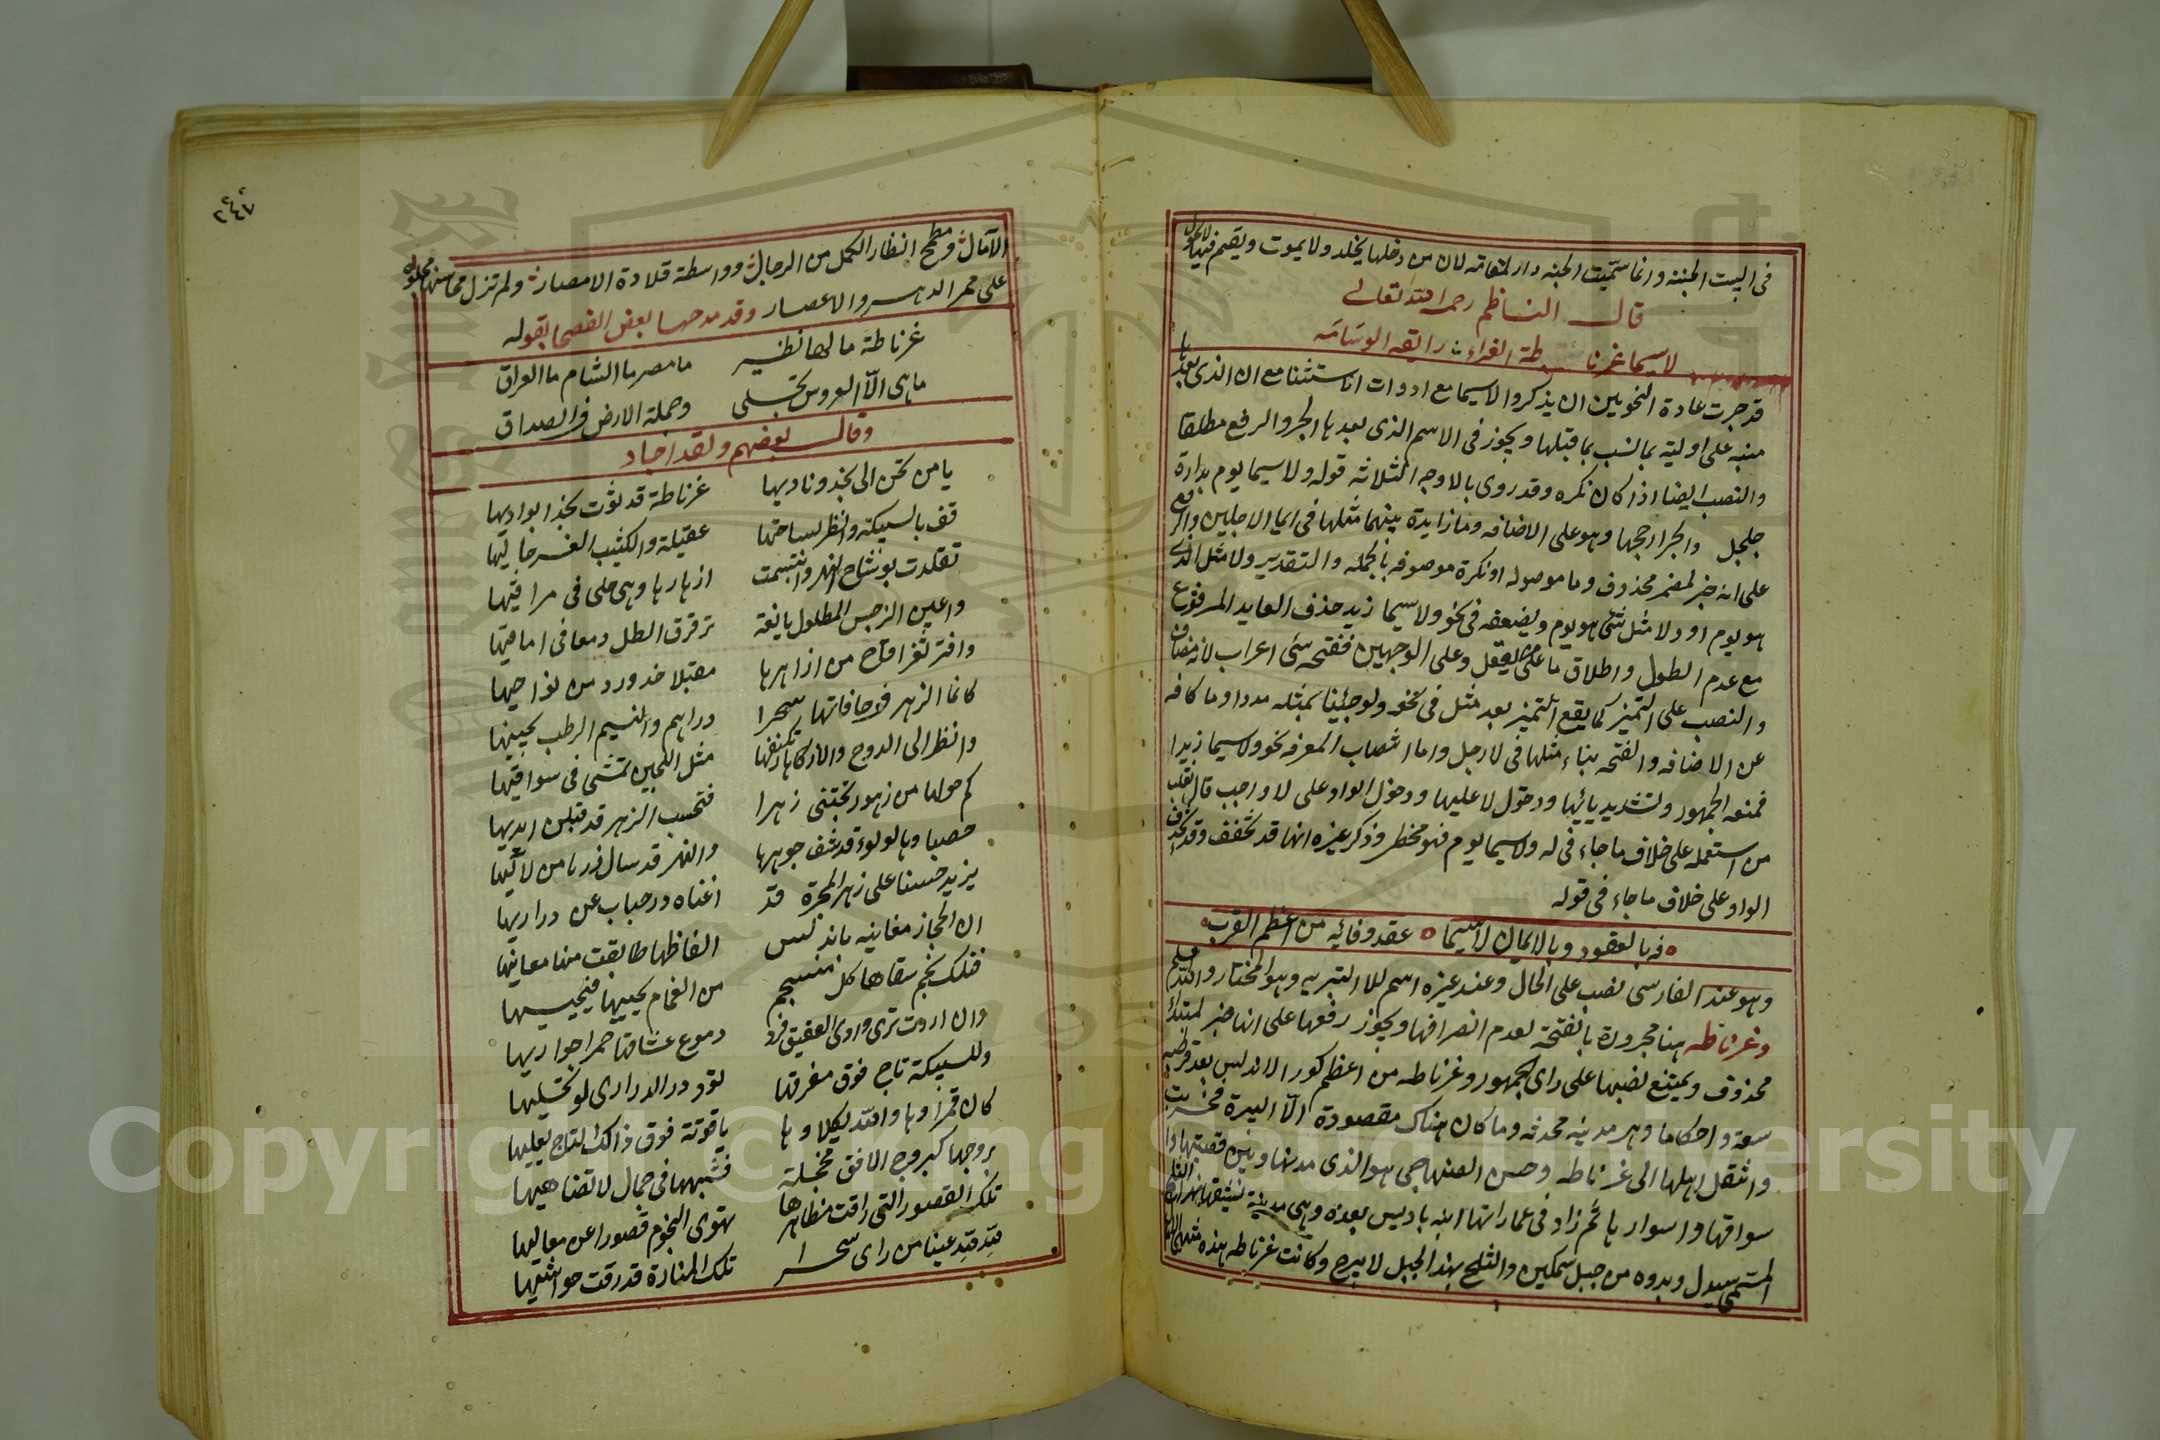 فى البيت الجنة وانما سميت الجنه دار المقامه لان من دخلها يخلد ولا يموت ويقيم فيها
قال الناظم رحمه الله تعالى
لاسيما غرناطة الغراء رايقه الوسامه
قد جرت عادة النحويين ان يذكروا لاسيما مع ادوات الاستثنا مع ان الذى بعدها
منبه على اوليته بما نسب بما قبلها ويجوز فى الاسم الذى بعدها الجر والرفع مطلقا
والنصب ايضا اذا كان نكره وقد روى بالاوجه الثلاثه قوله ولاسيما يوم بدارة
جلجل والجر ارجحها وهو على الاضافه وما زايدة بينهما مثلها فى ايما الاجلين والرفع
على انه خبر لمضمر محذوف وما موصوله او نكرة موصوفه بالجمله والتقدير ولا مثل الذى
هو يوم او ولا مثل شئ هو يوم ويضعفه فى نحو ولاسيما زيد حذف العايد المرفوع
مع عدم الطول واطلاق ما على من يعقل وعلى الوجهين ففتحه سى اعراب لانه مضاف
والنصب على التميز كما يقع التميز بعد مثل فى نحو ولو جئنا بمثله مددا وما كافه
عن الاضافه والفتحه بناء مثلها فى لا رجل واما انتصاب المعرفه نحو ولاسيما زيدا
فمنعه الجمهور وتشديد يائها ودخول لا عليها ودخول الواو على لا واجب قال ثعلب
من استعمله على خلاف ما جاء فى قوله ولاسيما يوم فهو مخطئ وذكر غيره انها قد تخفف وقد تحذف
الواو على خلاف ما جاء فى قوله
فه بالعقود وبالايمان لاسيما عقد وفائه من اعظم القرب
وهو عند الفارسى نصب على الحال وعند غيره اسم للا التبريه وهو المختار والله اعلم
وغرناطه هنا مجرورة بالفتحة لعدم انصرافها ويجوز رفعها على انها خبر لمبتدأ
محذوف ويمتنع نصبها على راى الجمهور وغرناطه من اعظم كور الاندلس بعد قرطبه
سعة واحكاما وهى مدينه محدثه وما كان هناك مقصودة الا البيرة فخربت
وانتقل اهلها الى غرناطه وحسن الصنهاجى هو الذى مدنها وبنى قصبتها
سواقها واسوارها ثم زاد فى عماراتها ابنه باديس بعده وهى مدينة يشقها نهر الثلج
المسمى سيدل وبدوه من جبل سمكين والثلج بهذا الجبل لا يبرح وكانت غرناطه هذه
٢٤٧
الآمال ومطمح انظار الكمل من الرجال وواسطة قلادة الامصار ولم تزل محاسنها مجلوه
على ممر الدهر والاعصار وقد مدحها بعض الفصحا بقوله
غرناطة مالها نظير ما مصر ما الشام ما العراق
ما هى الا العروس تجلى وجملة الارض فى الصداق
وقال بعضهم ولقد اجاد
يا من تحن الى نجد وناديها غرناطة قد ثوت نجد ابواديها
قف بالسبيكة وانظر لساحتها عقيلة والكثيب الفرد جاليها
تقلدت بوشاح النهر وابتسمت ازهارها وهى حلى فى مراقيها
واعين النرجس المطلول يانعة ترقرق الطل دمعا فى اماقيها
وافتر ثغر اقاح من ازاهرها مقبلا خد ورد من نواحيها
كانما الزهر فى حافاتها سحرا دراهم والنسيم الرطب يجبيها
وانظر الى الدوح والانهار تكنفها مثل اللجين تمشى فى سواقيها
كم حولها من زهور تجتنى زهرا فتحسب الزهر قد قبلن ايديها
حصباوها لولوء قد شف جوهرها والنهر قد سال ذربا من لآليها
يزيد حسنا على زهر المجرة قد اغناه در حباب عن دراريها
ان الحجاز مغانيه باندلس الفاظها طابقت منها معانيها
فتلك نجم سقاها كل منسجم من الغمام يحييها فيحييها
وان اردت ترى وادى العقيق فرد دموع عشاقها حمرا جواريها
وللسبيكة تاج فوق مفرقها تود در الدرارى لو تحليها
كان حمراوها والله يكلاوها ياقوتة فوق ذاك التاج يعليها
بروجها كبروج الافق مخجلة فشبهها فى جمال لا تضاهيها
تلك القصور التى راقت مظاهرها تهوى النجوم قصورا عن معاليها
لله لله عينا من راى سحرا تلك المنارة قد رقت حواشيها
Copyright © King Saud University